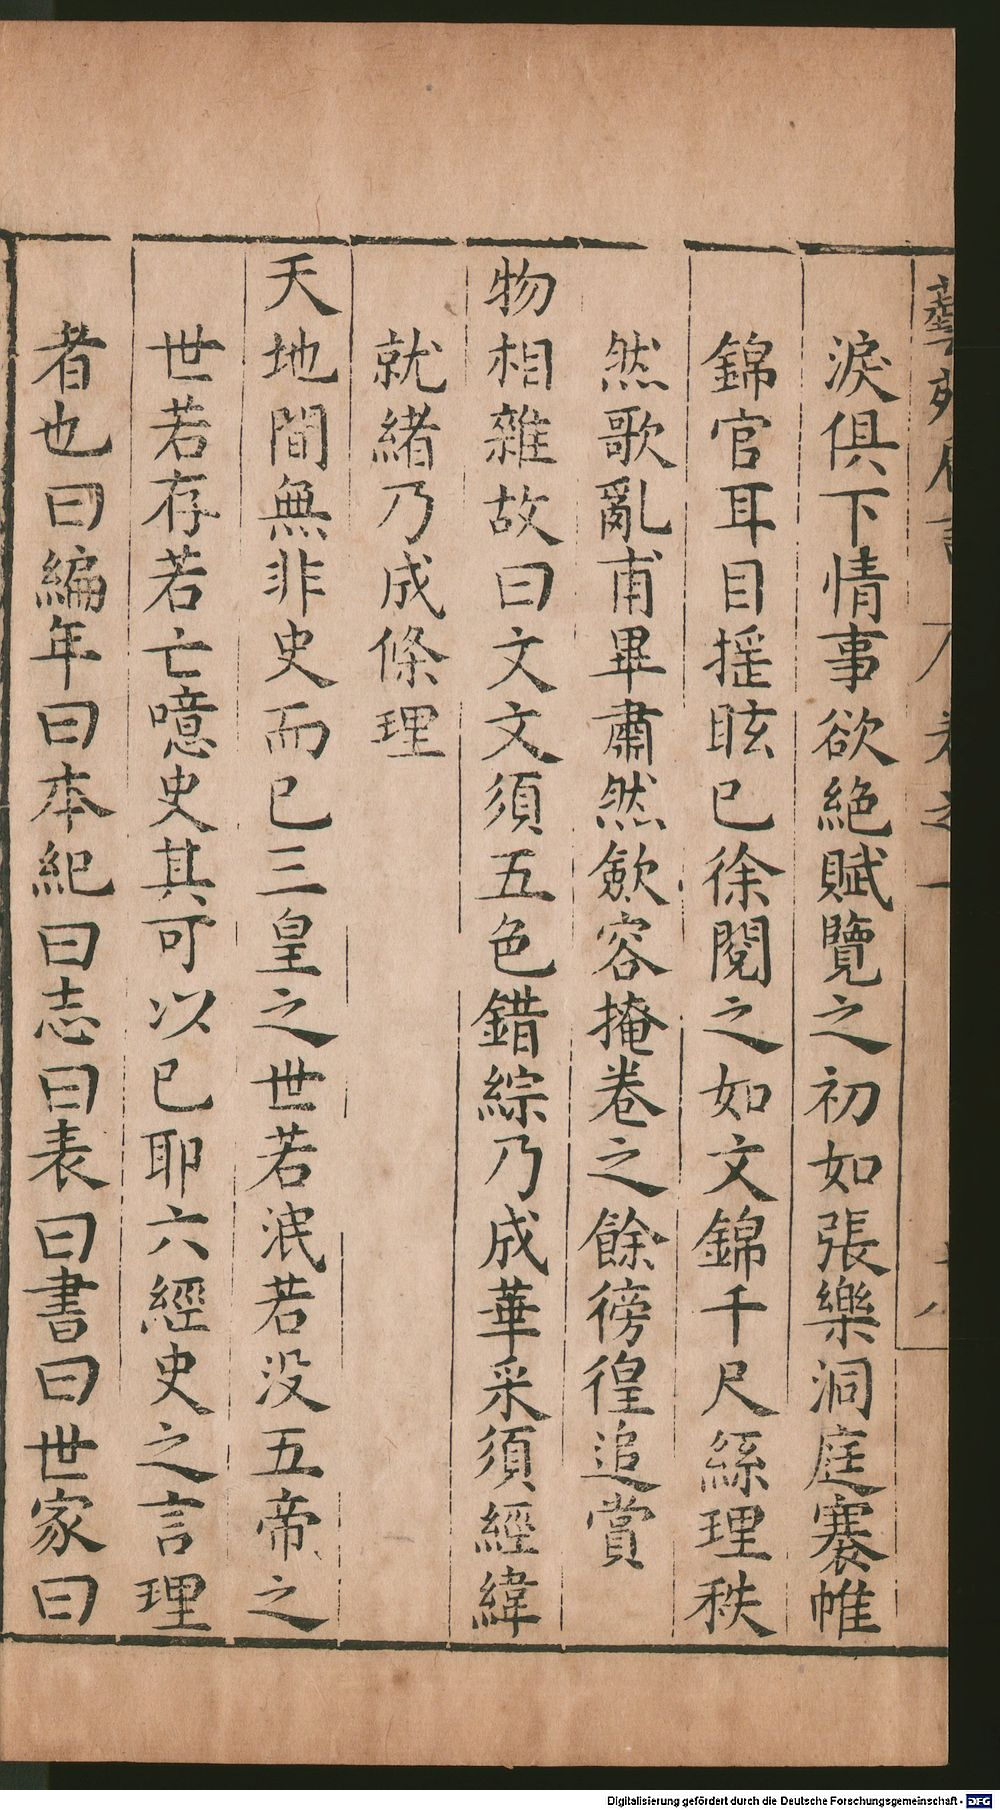 藝苑卮言 卷之一
淚俱下情事欲絕賦覽之初如張樂洞庭褰帷
錦官耳目摇眩已徐閱之如文錦千尺絲理秩
然歌亂甫畢肅然歛容掩卷之餘徬徨追賞
物相雜故曰文文須五色錯綜乃成華采須經緯
就緒乃成條理
天地間無非史而已三皇之世若泯若没五帝之
世若存若亡噫史其可以已耶六經史之言理
者也曰編年曰本紀曰志曰表曰書曰世家曰
Digitalisierung gefördert durch die Deutsche Forschungsgemeinschaft - DFG